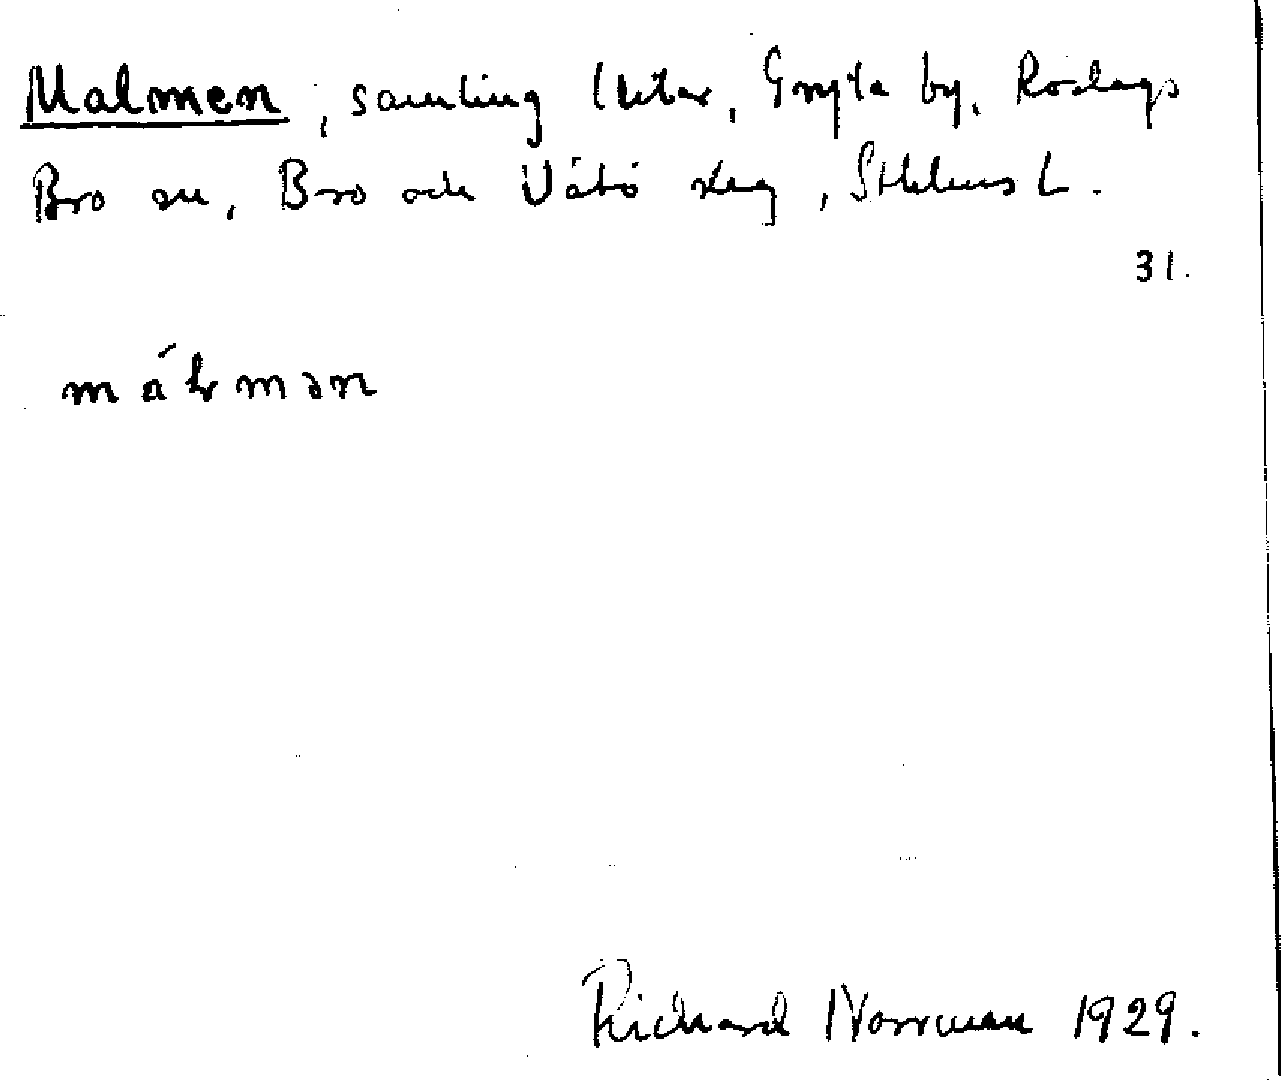 Malmen, samling tektar, Gnylta by, Roslags
Bro sn, Bro och Vätö skg, Sthlms L.
31.
Richard Norrman 1929.